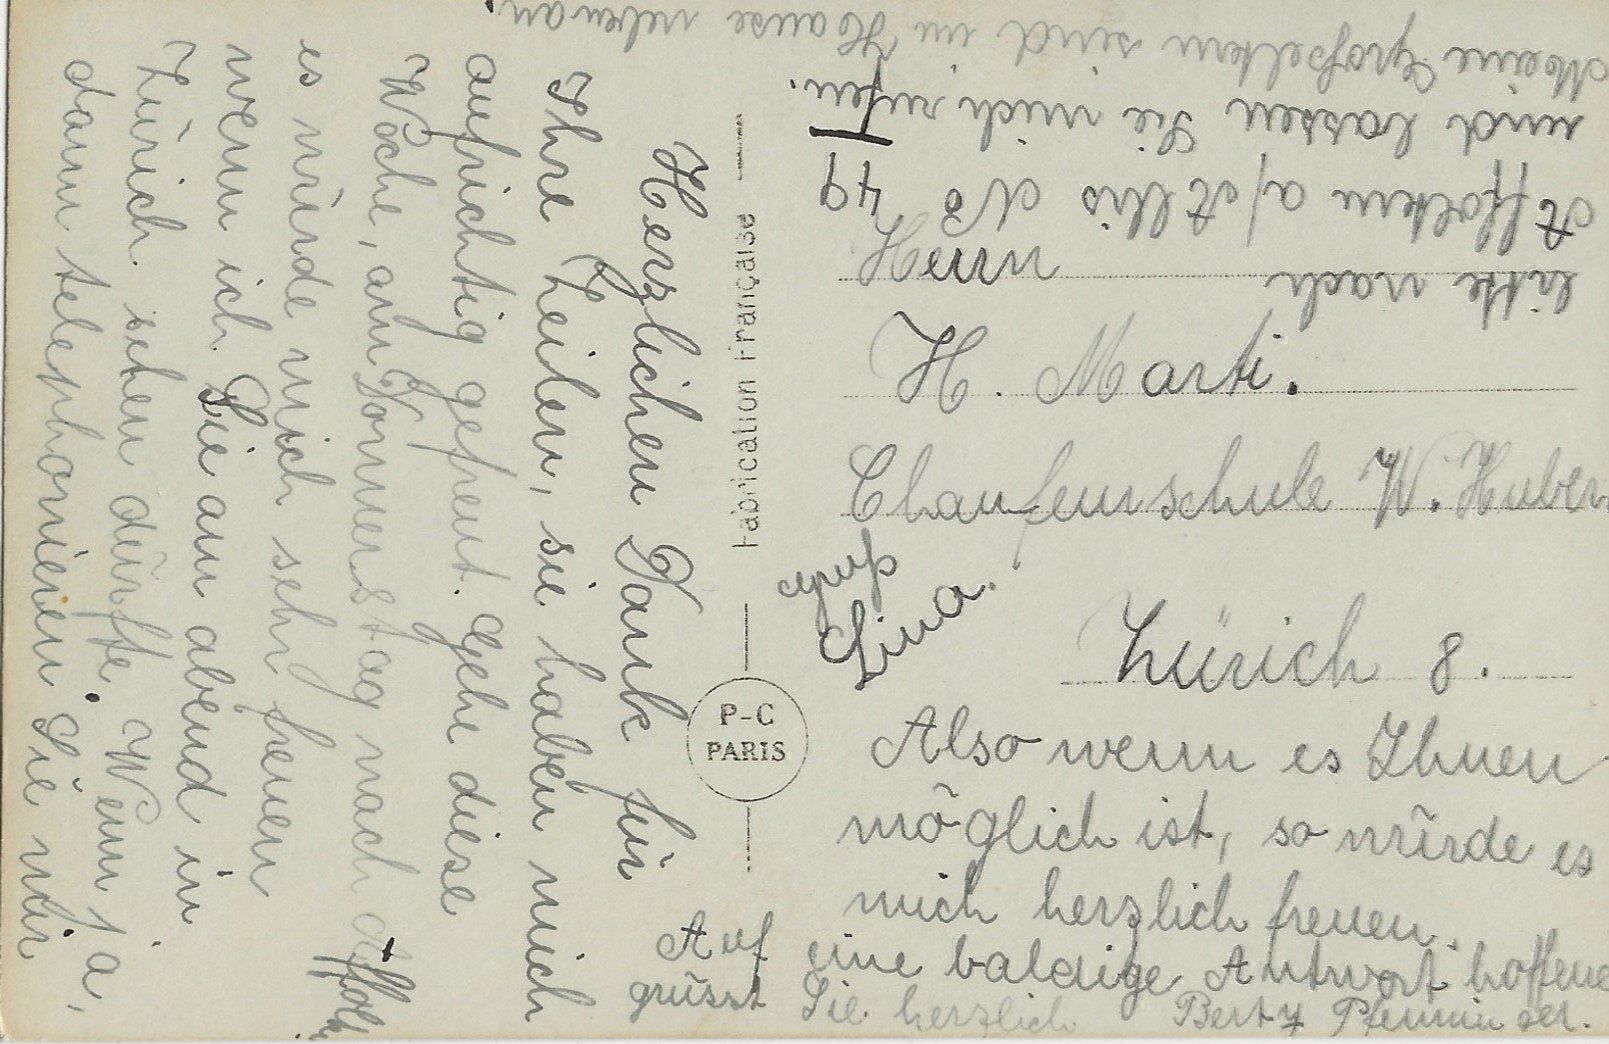 Herzlichen Dank für
Ihre Zeilen, sie haben mich
aufrichtig gefreut. Gehe diese
Woche, am Donnerstag nach Affolt.
es würde mich sehr freuen
wenn ich Sie am abend in
Zürich sehen dürfte. Wenn ja,
dann telephonieren Sie mir
bitte nach
Affoltern a/Albis No 49
und lassen Sie mich rufen.
Meine Großeltern sind im Hause nebenan.
Fabrication Française
P-C
PARIS
Herrn
H. Marti.
Chauffeurschule W. Huber
Zürich 8.
Gruß
Lina.
Also wenn es Ihnen
möglich ist, so würde es
mich herzlich freuen.
Auf eine baldige Antwort hoffend
grüsst Sie herzlich Berty Pfenninger.